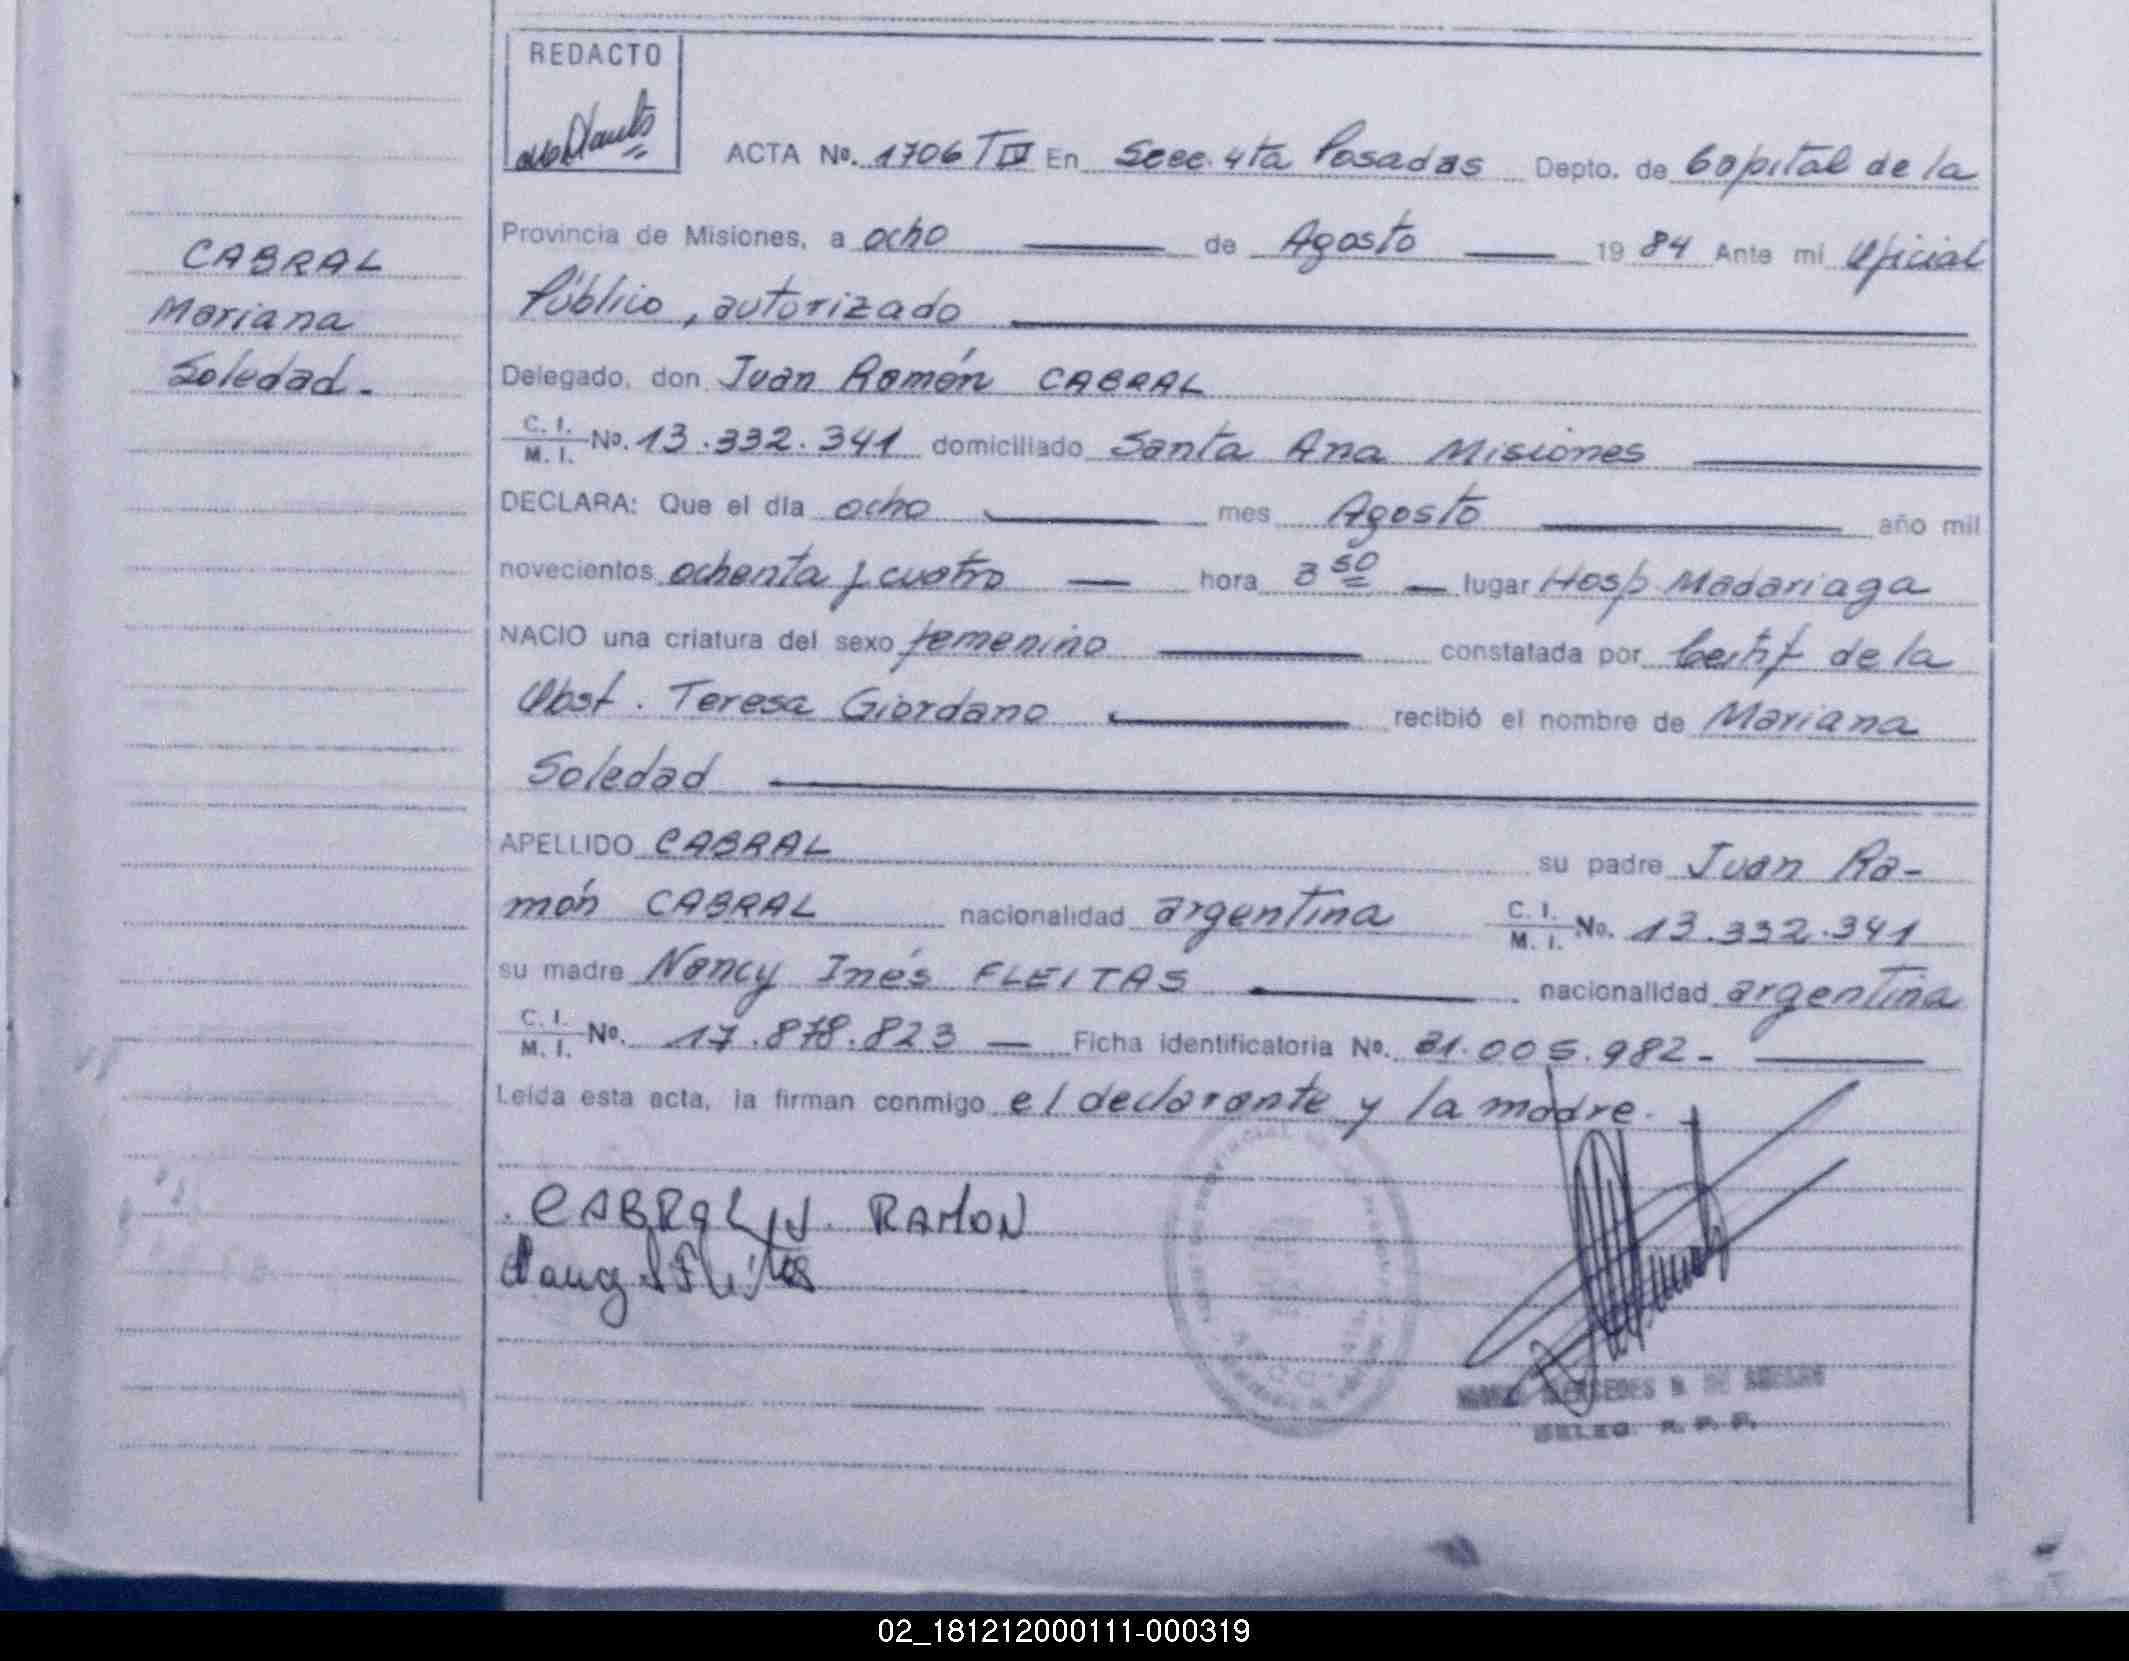 REDACTO
ACTA No. 1706 TIV En Secc. 4ta Posadas Depto. de Capital de la
Provincia de Misiones, a ocho de Agosto 1984 Ante mi Oficial
Público, autorizado
CABRAL
Mariana
Soledad.-
Delegado, don Juan Ramón CABRAL
C. I. M. I. No. 13.332.341 domiciliado Santa Ana Misiones
DECLARA: Que el día ocho mes Agosto año mil
novecientos ochenta y cuatro hora 3 50 lugar Hosp. Madariaga
NACIO una criatura del sexo femenino constatada por Certif de la
Obst. Teresa Giordano recibió el nombre de Mariana
Soledad
APELLIDO CABRAL su padre Juan Ra-
món CABRAL nacionalidad argentina C. I. M. I. No. 13.332.341
su madre Nancy Inés FLEITAS nacionalidad argentina
C. I. M. I. No. 17.878.823 Ficha identificatoria No. 31.005.982-
Leída esta acta, la firman conmigo el declarante y la madre.
CABRAL J. RAMON
Fleitas
MERCEDES
DELEG. R. P. P.
02_181212000111-000319